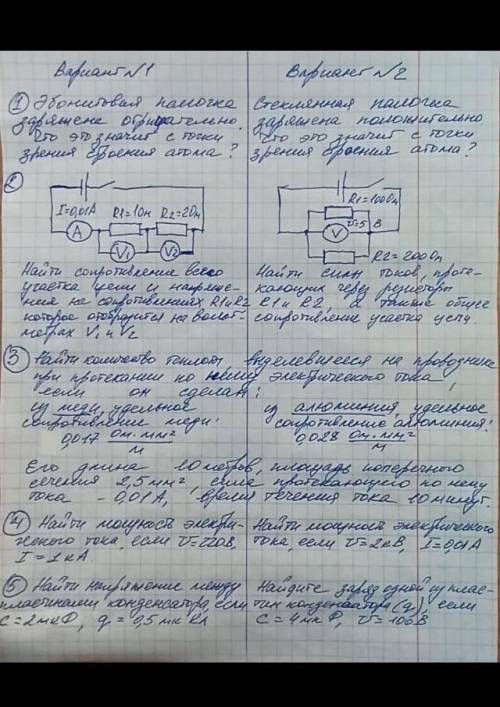 Вариант №1
Вариант №2
① Эбонитовая палочка
заряжена отрицательно.
Что это значит с точки
зрения строения атома?
Стеклянная палочка
заряжена положительно
Что это значит с точки
зрения строения атома?
②
I=0,01А
R1=1Ом
R2=2Ом
A
V1
V2
Найти сопротивление всего
участка цепи и напряже-
ния на сопротивлениях R1 и R2
которое отобразится на вольт-
метрах V1 и V2
R1=100Ом
V
U=5 В
R2=200Ом
Найти силы токов, проте-
кающих через резисторы
R1 и R2, а также общее
сопротивление участка цепи.
③ Найти количество теплоты, выделевшееся на проводнике
при протекании по нему электрического тока,
если он сделан:
из меди, удельное
сопротивление меди:
0,017 Ом·мм²/м
из алюминия, удельное
сопротивление алюминия:
0,028 Ом·мм²/м
Его длина 10 метров, площадь поперечного
сечения 2,5мм², сила протекающего по нему
тока - 0,01А, время течения тока 10 минут.
④ Найти мощность электри-
ческого тока, если U=220В,
I=1кА
Найти мощность электрического
тока, если U=2кВ, I=0,01А
⑤ Найти напряжение между
пластинами конденсатора, если
C=2мкФ, q=0,5мкКл
Найдите заряд одной из плас-
тин конденсатора (q), если
C=4мкФ, U=100В